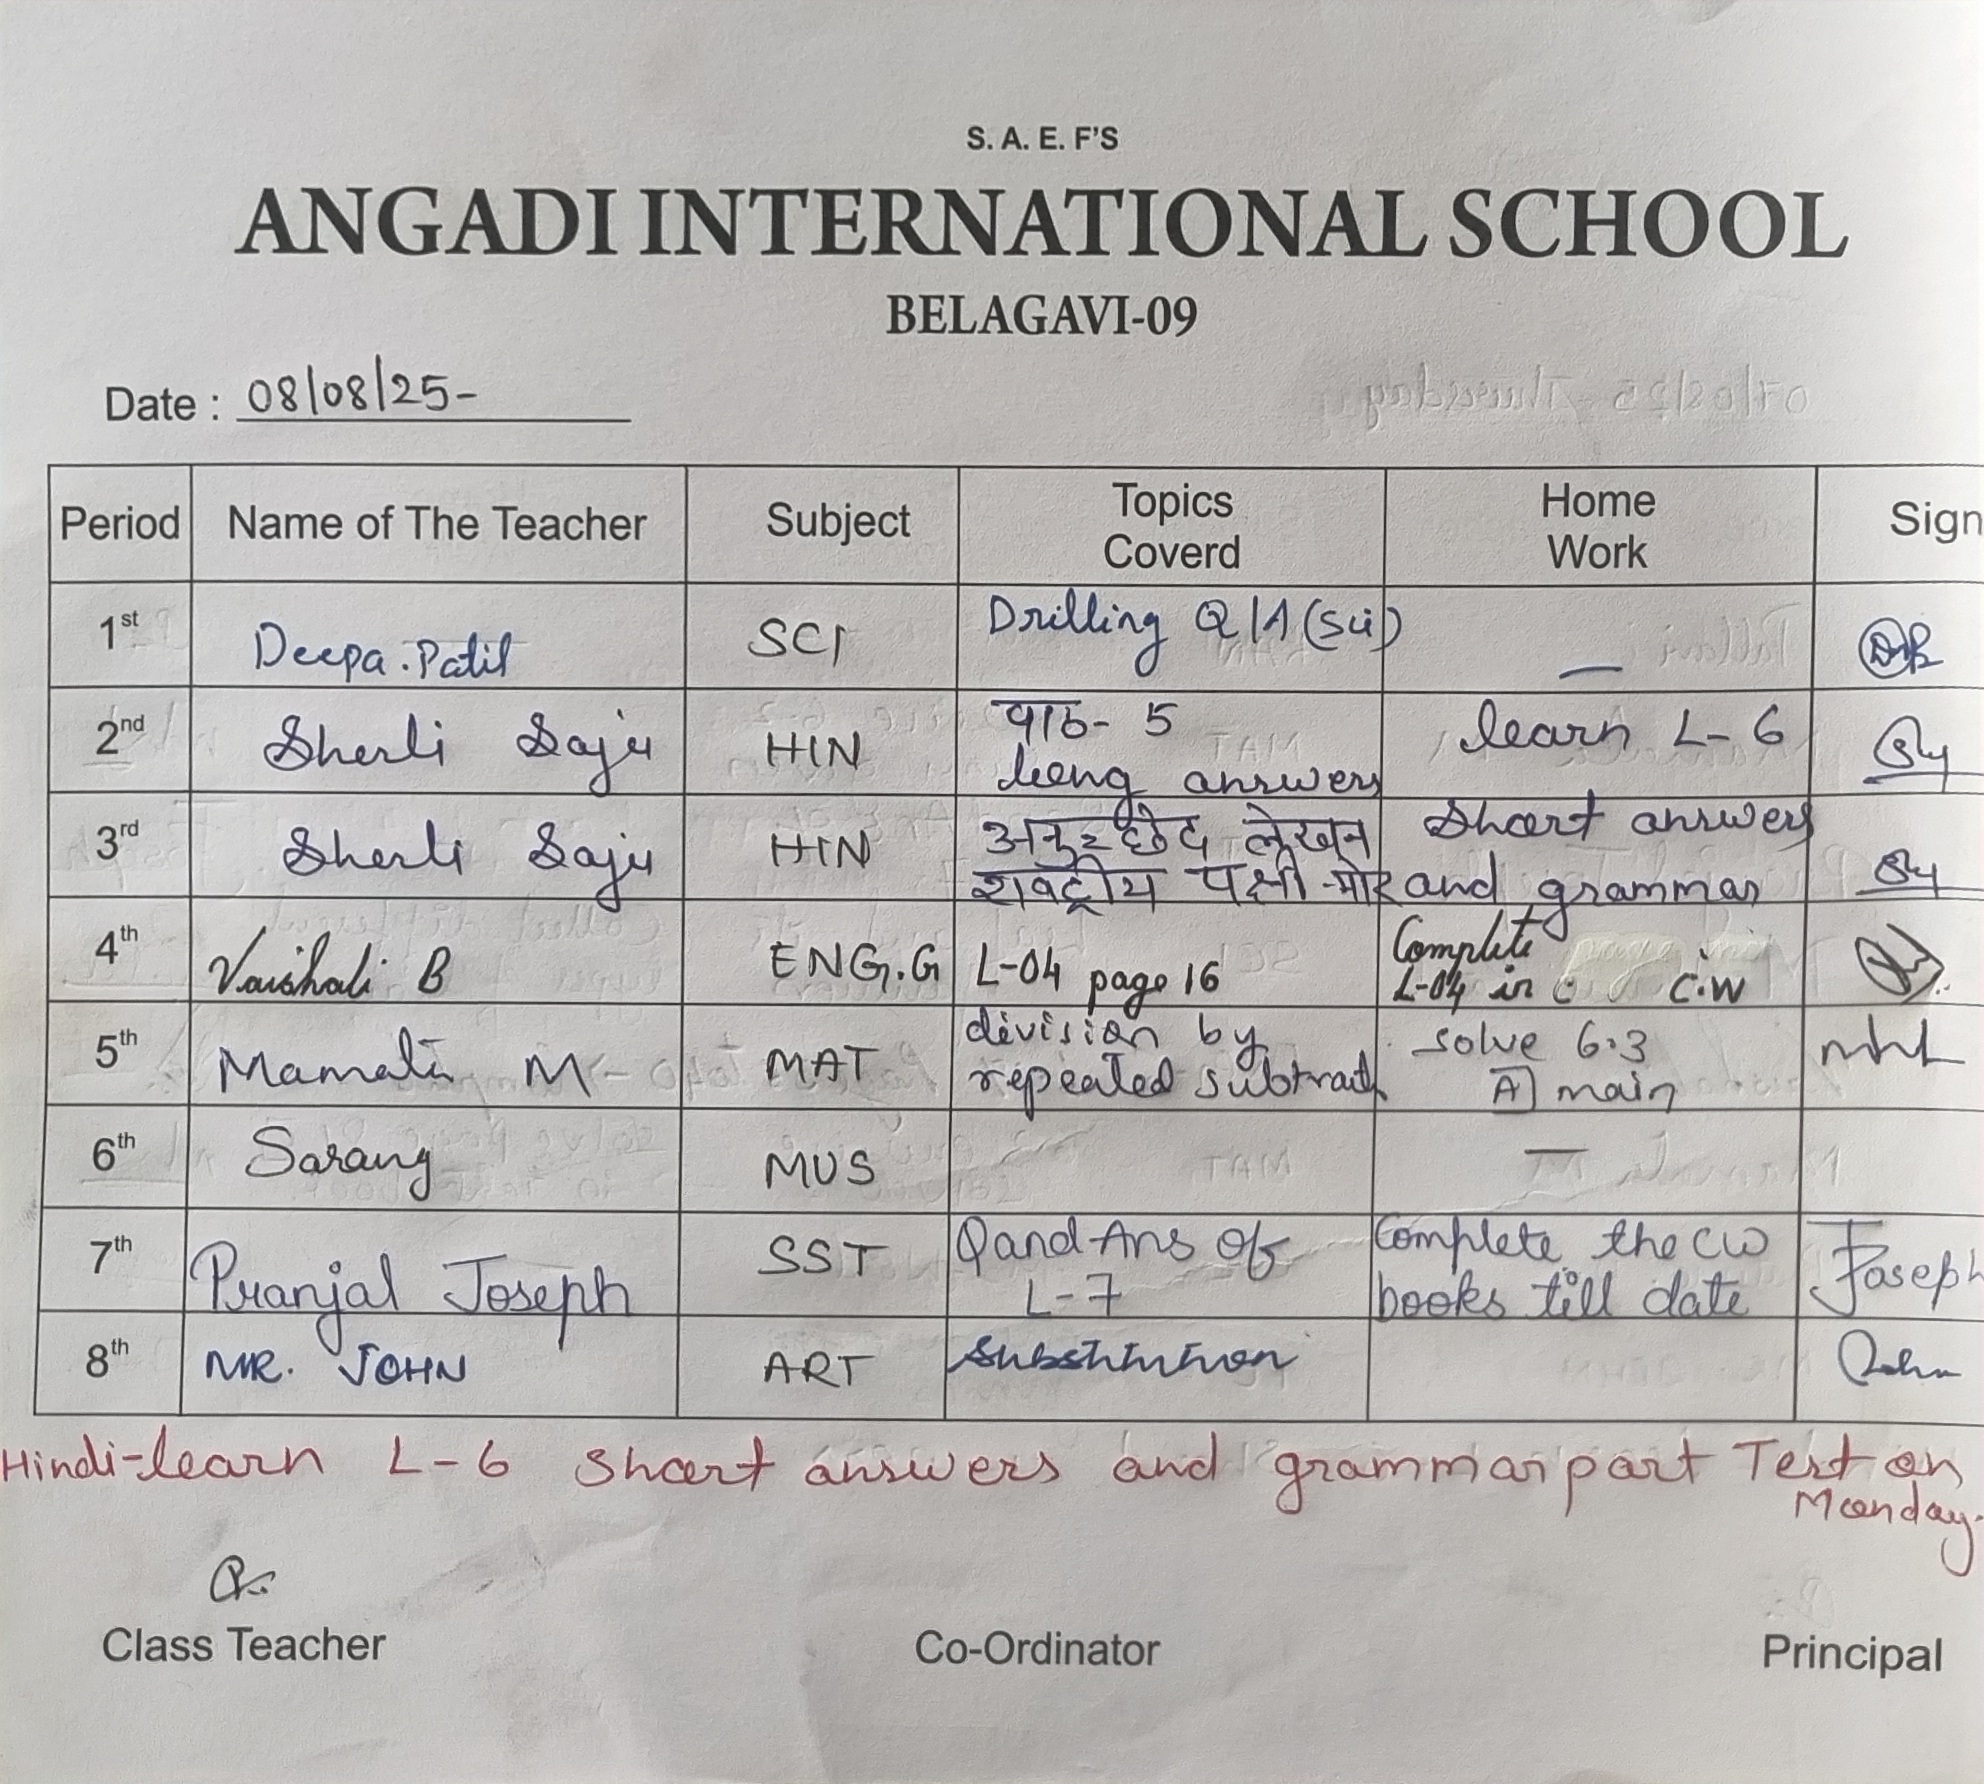 S. A. E. F'S
ANGADI INTERNATIONAL SCHOOL
BELAGAVI-09
Date : 08/08/25-
Period Name of The Teacher Subject Topics Coverd Home Work Sign
1st Deepa.Patil SCI Drilling Q/A (sci) —
2nd Sherli Saju HIN पाठ- 5 learn L-6
long answers
3rd Sherli Saju HIN अनुच्छेद लेखन short answers
पक्षी -मोर and grammar
4th Vaishali B ENG.G L-04 page 16 Complete
L-04 in C.W
5th M MAT division by solve 6.3
repeated subtract A) main
6th Sarang MUS —
7th Pranjal Joseph SST Q and Ans of Complete the CW
L-7 books till date Joseph
8th MR. JOHN ART Substitution
Hindi-learn L-6 short answers and grammar part Test on
Monday.
Class Teacher Co-Ordinator Principal